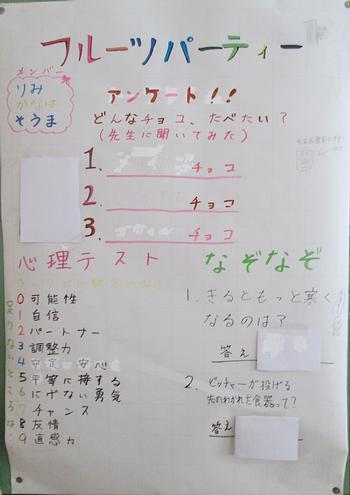 フルーツパーティー
メンバー
りみ
かなは
そうま
アンケート!!
どんなチョコ、たべたい?
(先生に聞いてみた)
1. チョコ
2. チョコ
3. チョコ
心理テスト
0 可能性
1 自信
2 パートナー
3 調整力
4 安定・安心
5 平等に接する
6 にげない勇気
7 チャンス
8 友情
9 直感力
足りないところは:
なぞなぞ
1. きるともっと寒く
なるのは?
答え
2. ピッチャーが投げる
先のわかれた食器って?
答え